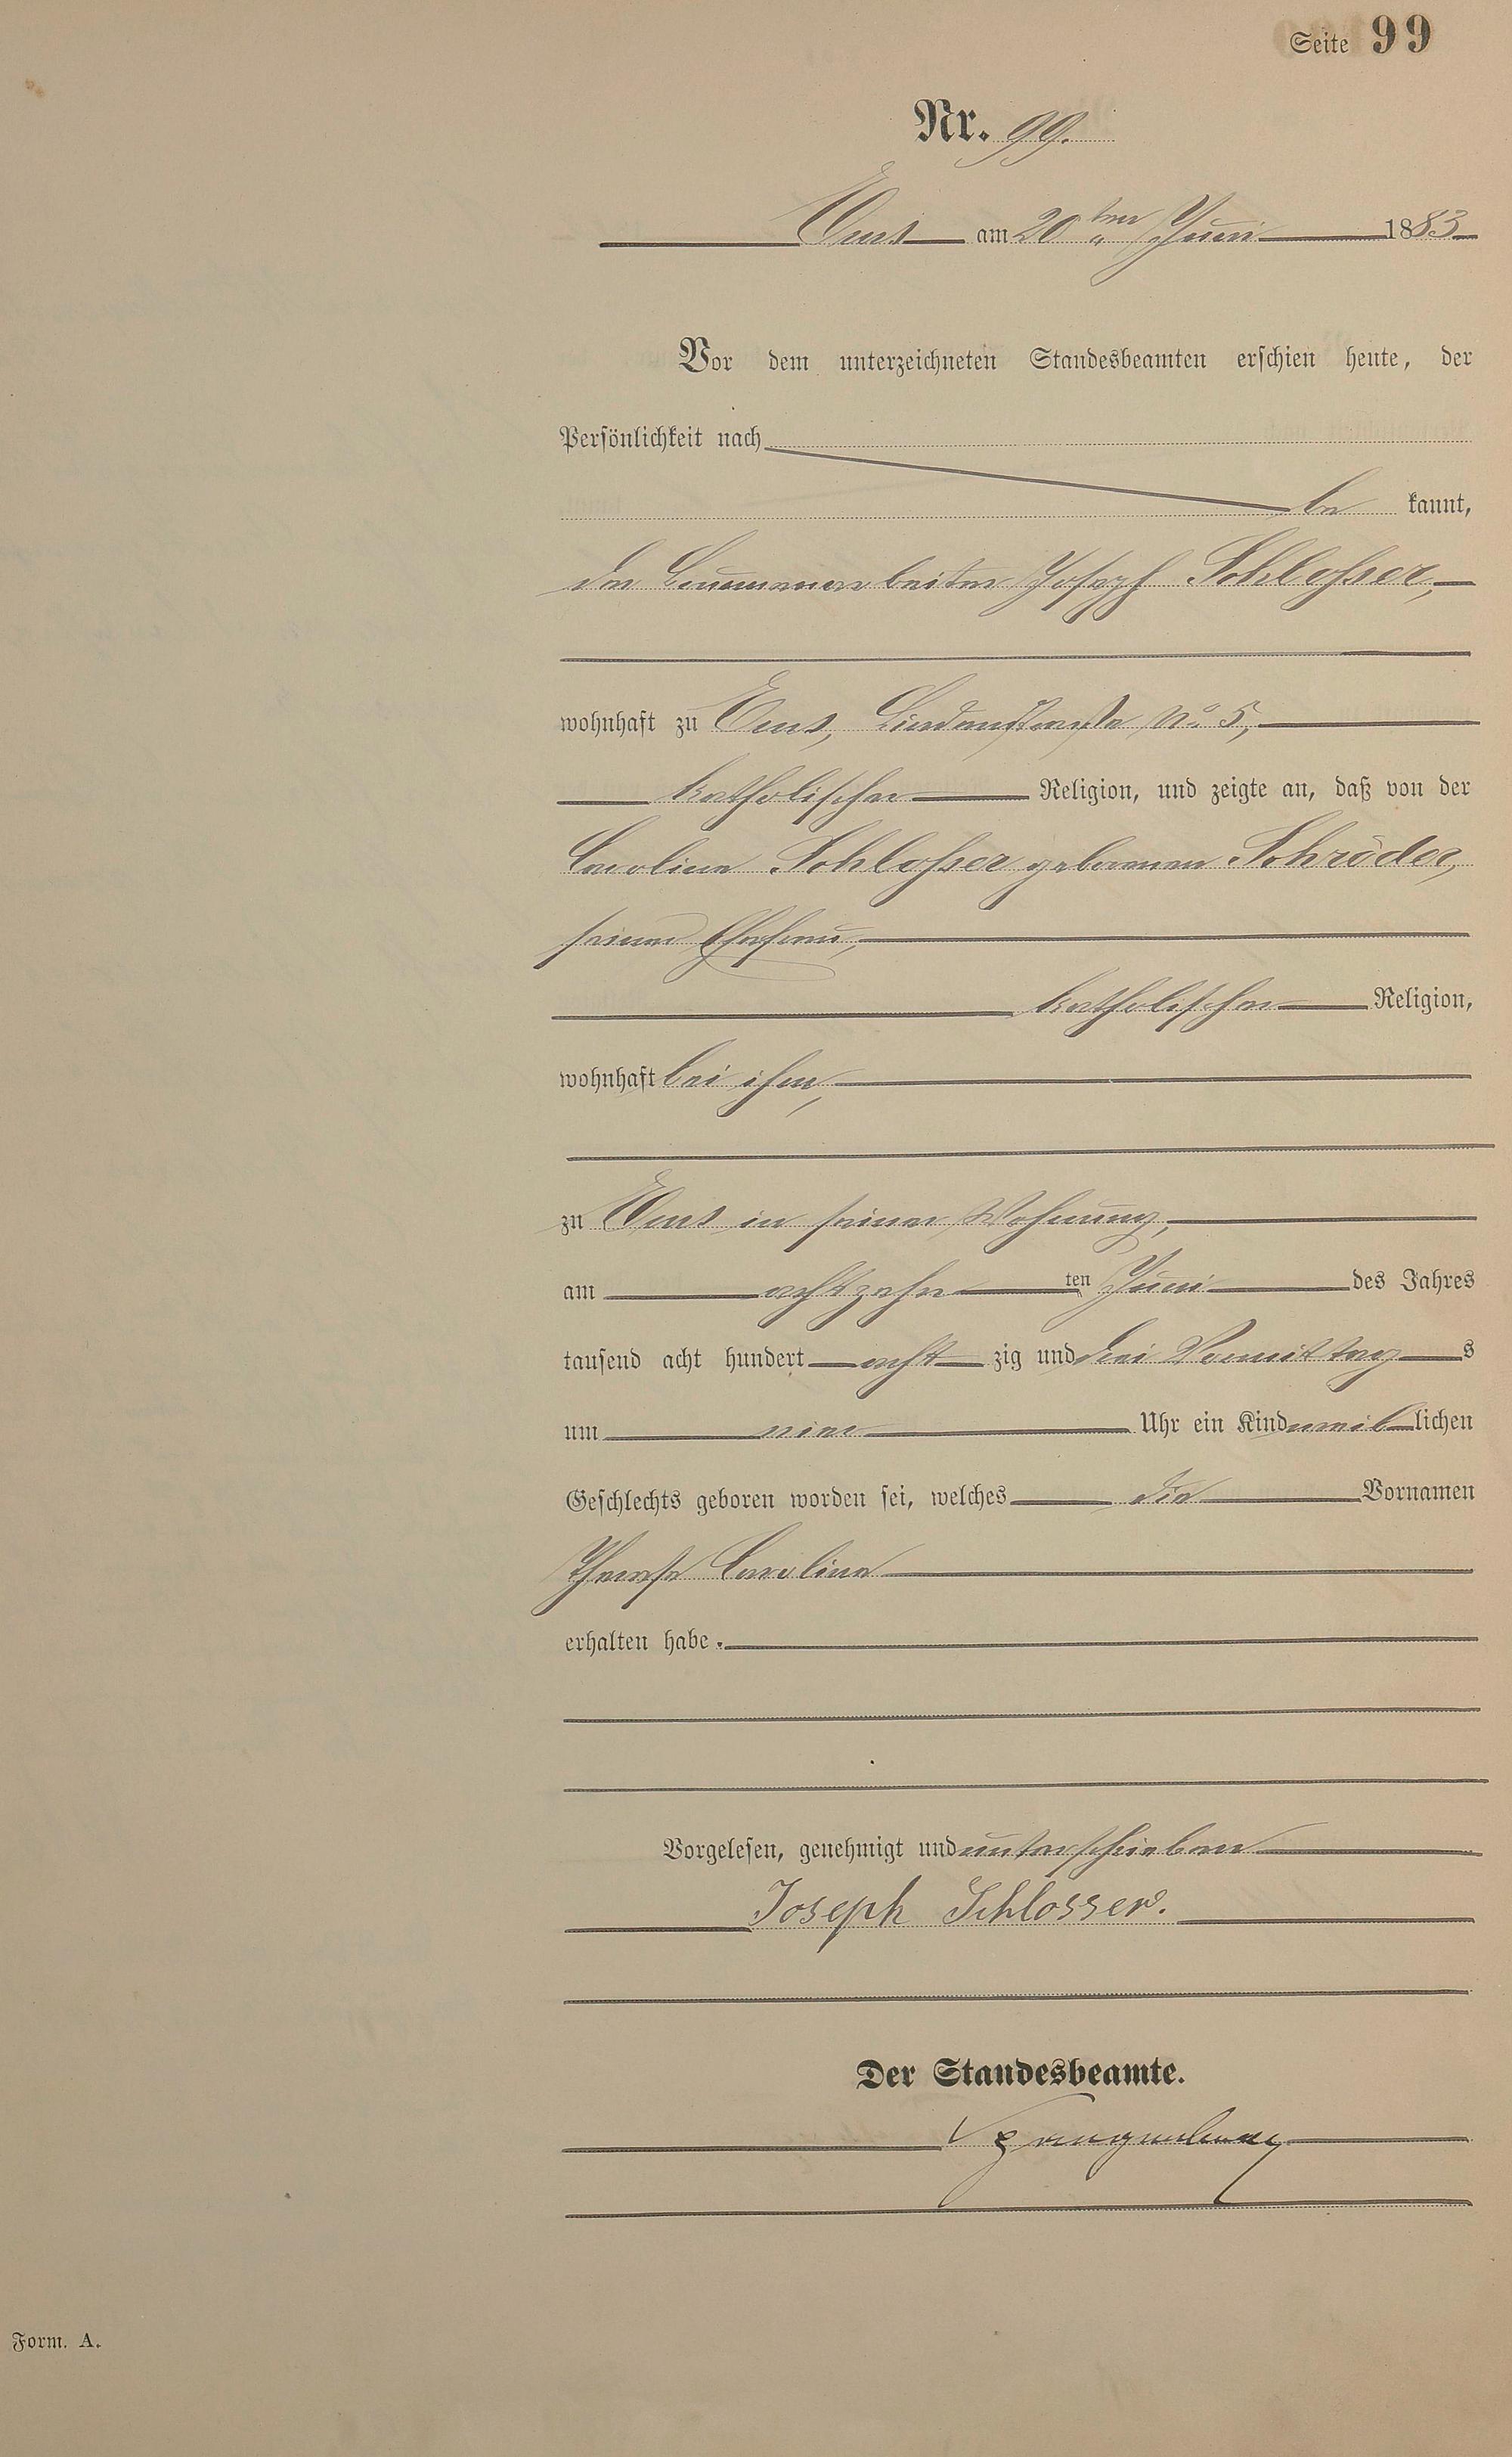 Seite 99
Nr. 99.
Ems am 20ten Juni 1883
Vor dem unterzeichneten Standesbeamten erschien heute, der
Persönlichkeit nach
be kannt,
der Joseph Schlosser,
wohnhaft zu Ems, Lindenstraße No 5,
katholischer Religion, und zeigte an, daß von der
Caroline Schlosser geborenen Schröder,
seiner Ehefrau,
katholischer Religion,
wohnhaft bei ihm,
zu Ems in seiner Wohnung,
am achtzehn ten Juni des Jahres
tausend acht hundert acht zig und drei Vormittag s
um Uhr ein Kind weib lichen
Geschlechts geboren worden sei, welches die Vornamen
Therese Caroline
erhalten habe.
Vorgelesen, genehmigt und unterschrieben
Joseph Schlosser.
Der Standesbeamte.
Form. A.